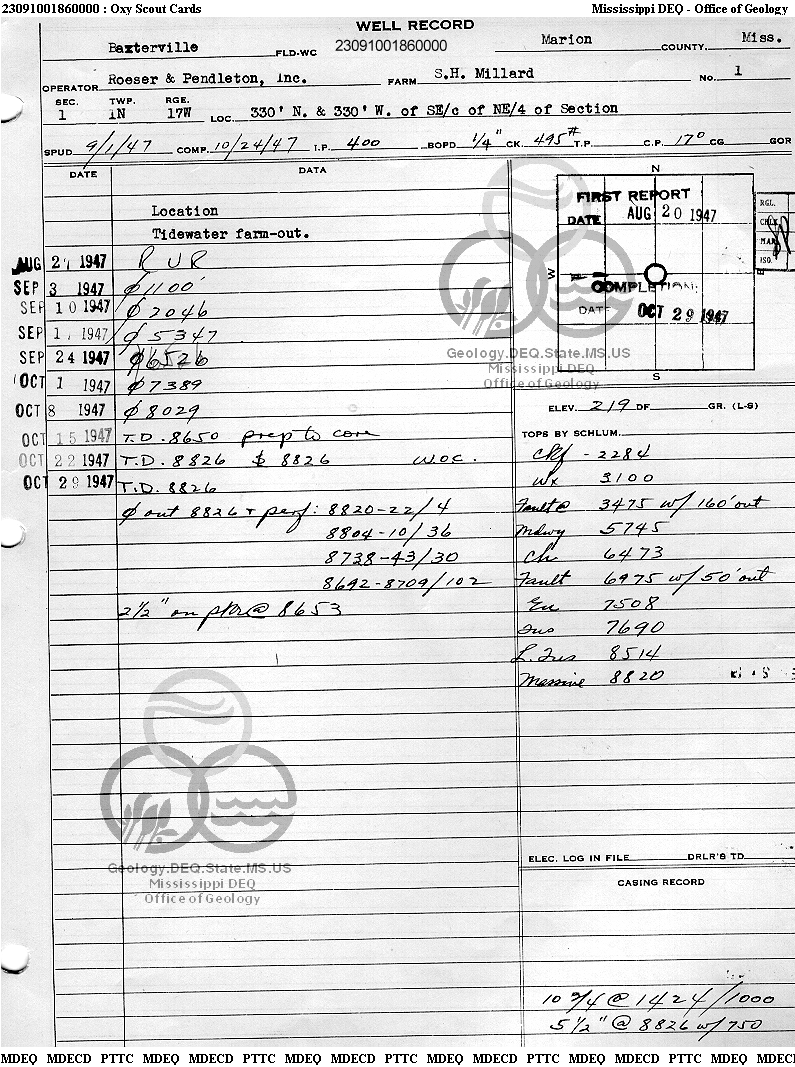 23091001860000 : Oxy Scout Cards Mississippi DEQ - Office of Geology
WELL RECORD
Baxterville FLD-WC 23091001860000 Marion COUNTY. Miss.
OPERATOR Roeser & Pendleton, Inc. FARM S.H. Millard No. 1
SEC. TWP. RGE.
1 1N 17W LOC. 330' N. & 330' W. of SE/c of NE/4 of Section
SPUD 9/1/47 COMP. 10/24/47 I.P. 400 BOPD 1/4" CK. 495# T.P. C.P. 17° CG. GOR
DATE DATA
N
FIRST REPORT
DATE AUG 20 1947
W
COMPLETION:
DATE OCT 29 1947
S
RGL.
CHK.
MAR.
ISO.
Location
Tidewater farm-out.
AUG 27 1947 R U R
SEP 3 1947 Ø 1100'
SEP 10 1947 Ø 2046
SEP 1 1947 Ø 5347
SEP 24 1947 Ø 6526
OCT 1 1947 Ø 7389
OCT 8 1947 Ø 8029
OCT 15 1947 T.D. 8650 prep to core
OCT 22 1947 T.D. 8826 $ 8826 WOC.
OCT 29 1947 T.D. 8826
Ø out 8826 + perf: 8820-22/4
8804-10/36
8738-43/30
8692-8709/102
2 1/2" on pkr @ 8653
Geology.DEQ.State.MS.US
Mississippi DEQ
Office of Geology
ELEV. 219 DF GR. (L-S)
TOPS BY SCHLUM.
Ckf - 2284
Wx 3100
Fault @ 3475 w/ 160' out
Mdwy 5745
Ch 6473
Fault 6975 w/ 50' out
Eu 7508
Tus 7690
L. Tus 8514
Massive 8820
Geology.DEQ.State.MS.US
Mississippi DEQ
Office of Geology
ELEC. LOG IN FILE DRLR'S TD
CASING RECORD
10 3/4 @ 1424/1000
5 1/2" @ 8826 w/ 750
MDEQ MDECD PTTC MDEQ MDECD PTTC MDEQ MDECD PTTC MDEQ MDECD PTTC MDEQ MDECD PTTC MDEQ MDEC